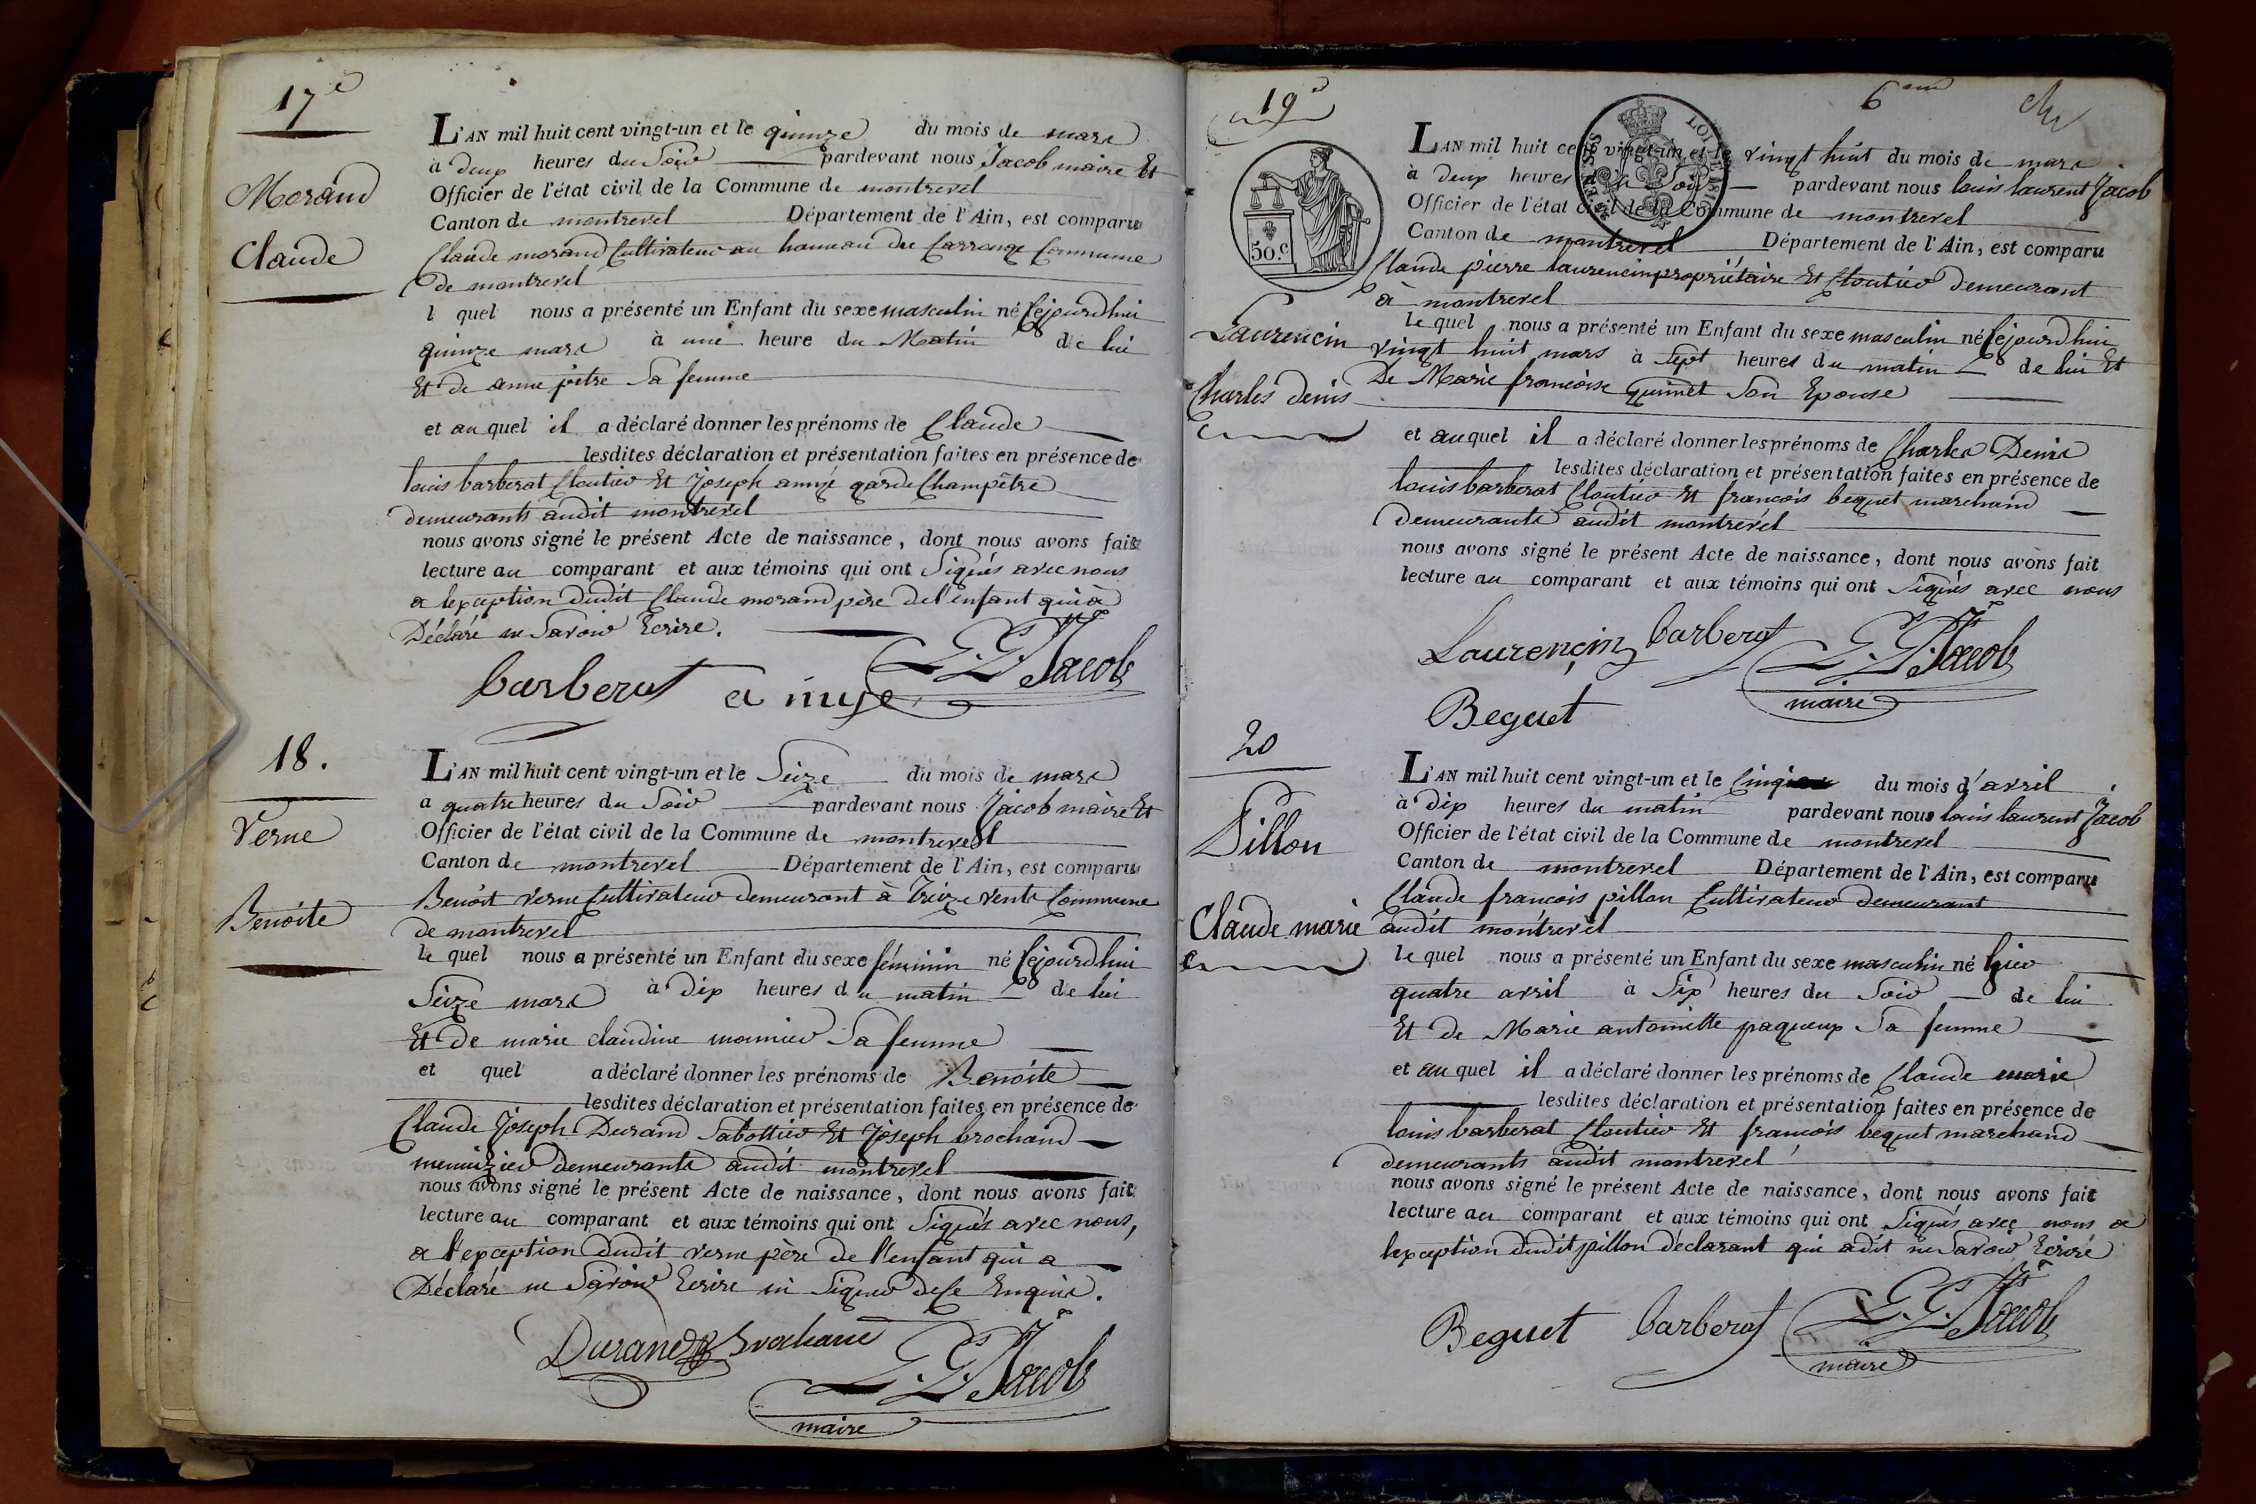 17e
Morand
Claude
L'AN mil huit cent vingt-un et le quinze du mois de mars
à deux heures du Soir pardevant nous Jacob maire Et
Officier de l'état civil de la Commune de montrevel
Canton de montrevel Département de l'Ain, est comparu
Claude morand Cultivateur au hameau du Carronge Commune
de montrevel
l quel nous a présenté un Enfant du sexe masculin né Cejourdhui
quinze mars à une heure du Matin de lui
Et de anne pitre Sa femme
et au quel il a déclaré donner les prénoms de Claude
lesdites déclaration et présentation faites en présence de
louis barberat Cloutier Et Joseph garde Champêtre
demeurants audit montrevel
nous avons signé le présent Acte de naissance, dont nous avons fait
lecture au comparant et aux témoins qui ont Signés avec nous
a lexception dudit Claude morand père de l'enfant qui à
Déclaré ne Savoir Ecrire.
barberat L. L. Jacob
18.
Verne
Benoite
L'AN mil huit cent vingt-un et le Seize du mois de mars
a quatre heures du Soir pardevant nous Jacob maire Et
Officier de l'état civil de la Commune de montrevel
Canton de montrevel Département de l'Ain, est comparu
Benoit verne Cultivateur demeurant à Treize vents Commune
de montrevel
le quel nous a présenté un Enfant du sexe féminin né Cejourdhui
Seize mars à dix heures du matin de lui
Et de marie claudine monnier Sa femme
et quel a déclaré donner les prénoms de Benoite
lesdites déclaration et présentation faites en présence de
Claude Joseph Durand Sabottier Et Joseph brochand
menuizier demeurants audit montrevel
nous avons signé le présent Acte de naissance, dont nous avons fait
lecture au comparant et aux témoins qui ont Signés avec nous,
a l'exception dudit verne père de l'enfant qui a
Déclaré ne Savoir Ecrire ni Signer de ce Enquis.
Durand Brochand L. L. Jacob
maire
19e
6me
50.c
LOUIS
Laurencin
Charles denis
L'AN mil huit cent vingt-un et le vingt huit du mois de mars
à deux heures du Soir pardevant nous louis laurent Jacob
Officier de l'état civil de la Commune de montrevel
Canton de montrevel Département de l'Ain, est comparu
Claude pierre laurencin propriétaire Et Cloutier Demeurant
à montrevel
Le quel nous a présenté un Enfant du sexe masculin né Cejourdhui
vingt huit mars à Sept heures du matin de lui Et
De Marie francoise quinet Son Epouse
et auquel il a déclaré donner les prénoms de Charles Denis
lesdites déclaration et présentation faites en présence de
louis barberat Cloutier Et francois bequet marchand
demeurants audit montrevel
nous avons signé le présent Acte de naissance, dont nous avons fait
lecture au comparant et aux témoins qui ont Signés avec nous
Laurençin barberat L. L. Jacob
maire
Beguet
20
Pillon
Claude marie
L'AN mil huit cent vingt-un et le Cinq du mois d'avril
à dix heures du matin pardevant nous louis laurent Jacob
Officier de l'état civil de la Commune de montrevel
Canton de montrevel Département de l'Ain, est comparu
Claude francois pillon Cultivateur demeurant
audit montrevel
le quel nous a présenté un Enfant du sexe masculin né hier
quatre avril à Six heures du Soir de lui
Et de Marie antoinette paqueux Sa femme
et au quel il a déclaré donner les prénoms de Claude marie
lesdites déclaration et présentation faites en présence de
louis barberat Cloutier Et francois bequet marchand
demeurants audit montrevel
nous avons signé le présent Acte de naissance, dont nous avons fait
lecture au comparant et aux témoins qui ont Signés avec nous a
lexception dudit pillon déclarant qui a dit ne Savoir Ecrire
Beguet barberat L. L. Jacob
maire